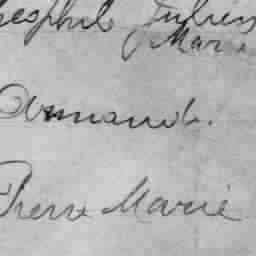 Julien
Marie
Armand.
Pierre Marie